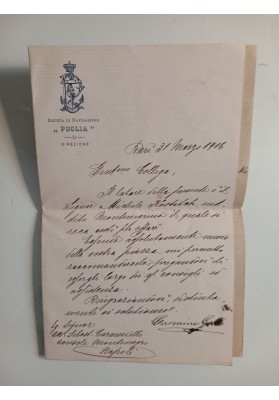 SOCIETÀ DI NAVIGAZIONE
„ PUGLIA "
DIREZIONE
Bari 31 Marzo 1916
Egregio Collega,
Il latore della presente è il
Signor Michele
dito Montenegrino il quale si
reca costì per affari.
Essendo assolutamente nuovo
della vostra piazza, mi permetto
raccomandarvelo pregandovi di
essergli largo di consigli ed
assistenza.
Ringraziandovi, distinta-
mente vi salutiamo.
Giovanni
Eg. Signor
Console Montenegro
Napoli